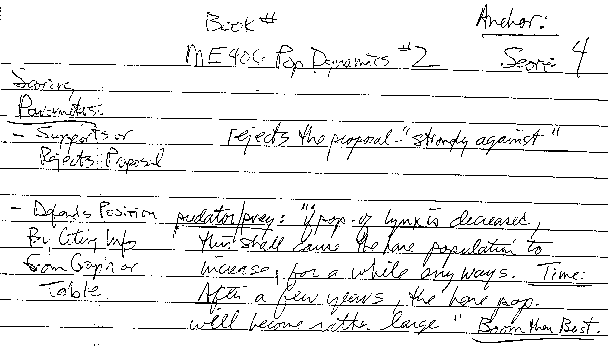 Book #
Anchor:
ME406 Pop Dynamics #2
Score: 4
Scoring
Parameters:
- Supports or rejects the proposal - "strongly against"
Rejects Proposal
- Defends Position predator/prey: "if pop. of lynx is decreased,
By Citing Info this shall cause the hare population to
from Graph or increase, for a while any ways. Time:
Table After a few years, the hare pop.
will become rather large" Boom then Bust.